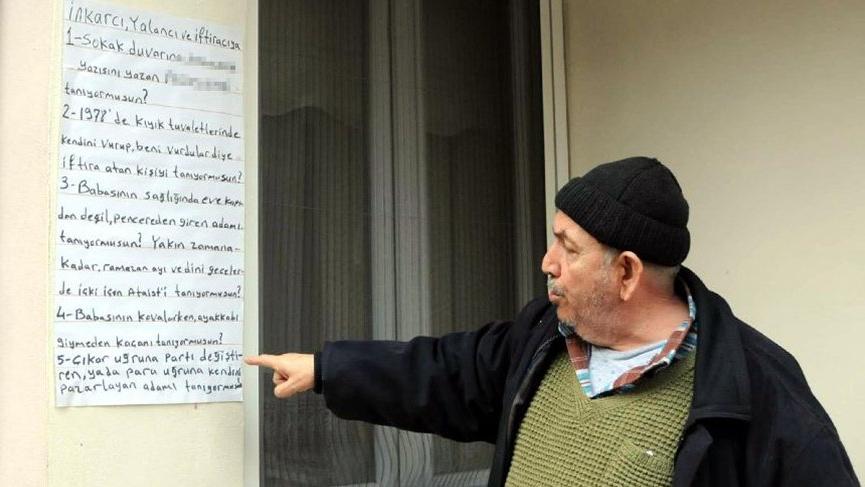 İnkarcı, Yalancı ve iftiracıya
1-Sokak duvarına
yazısını yazan
tanıyormusun?
2-1978'de Kıyık tuvaletlerinde
kendini vurup, beni vurdular diye
iftira atan kişiyi tanıyormusun?
3-Babasının sağlığında eve kapı
dan değil, pencereden giren adamı
tanıyormusun? Yakın zamana-
Kadar, ramazan ayı ve dini geceler-
de içki içen Ataist'i tanıyormusun?
4-Babasının kovalarken, ayakkabı
giymeden kaçanı tanıyormusun?
5-Çıkar uğruna parti değişti-
ren, yada para uğruna kendini
pazarlayan adamı tanıyormusun